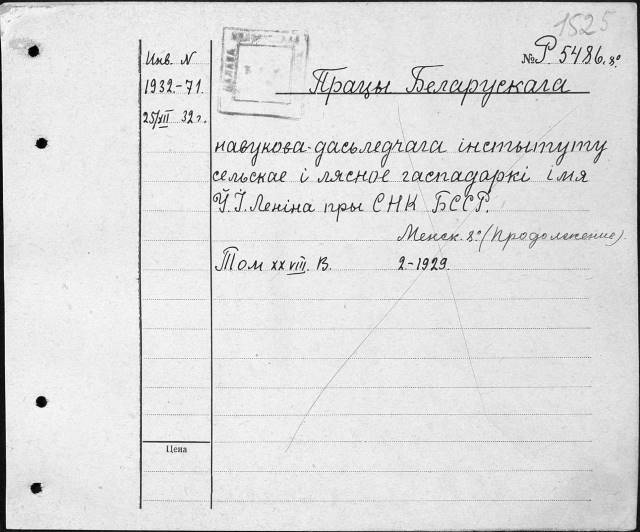 1525
№ Р 5486. 8°
Инв. N
1932-71.
25/XII 32 г.
Працы Беларускага
навукова-дасьледчага інстытуту
сельскае і лясное гаспадаркі імя
Ў.Ї. Леніна пры СНК БССР.
Менск. 8° (Продолжение).
Том XXVIII. В. 2-1929.
Цена